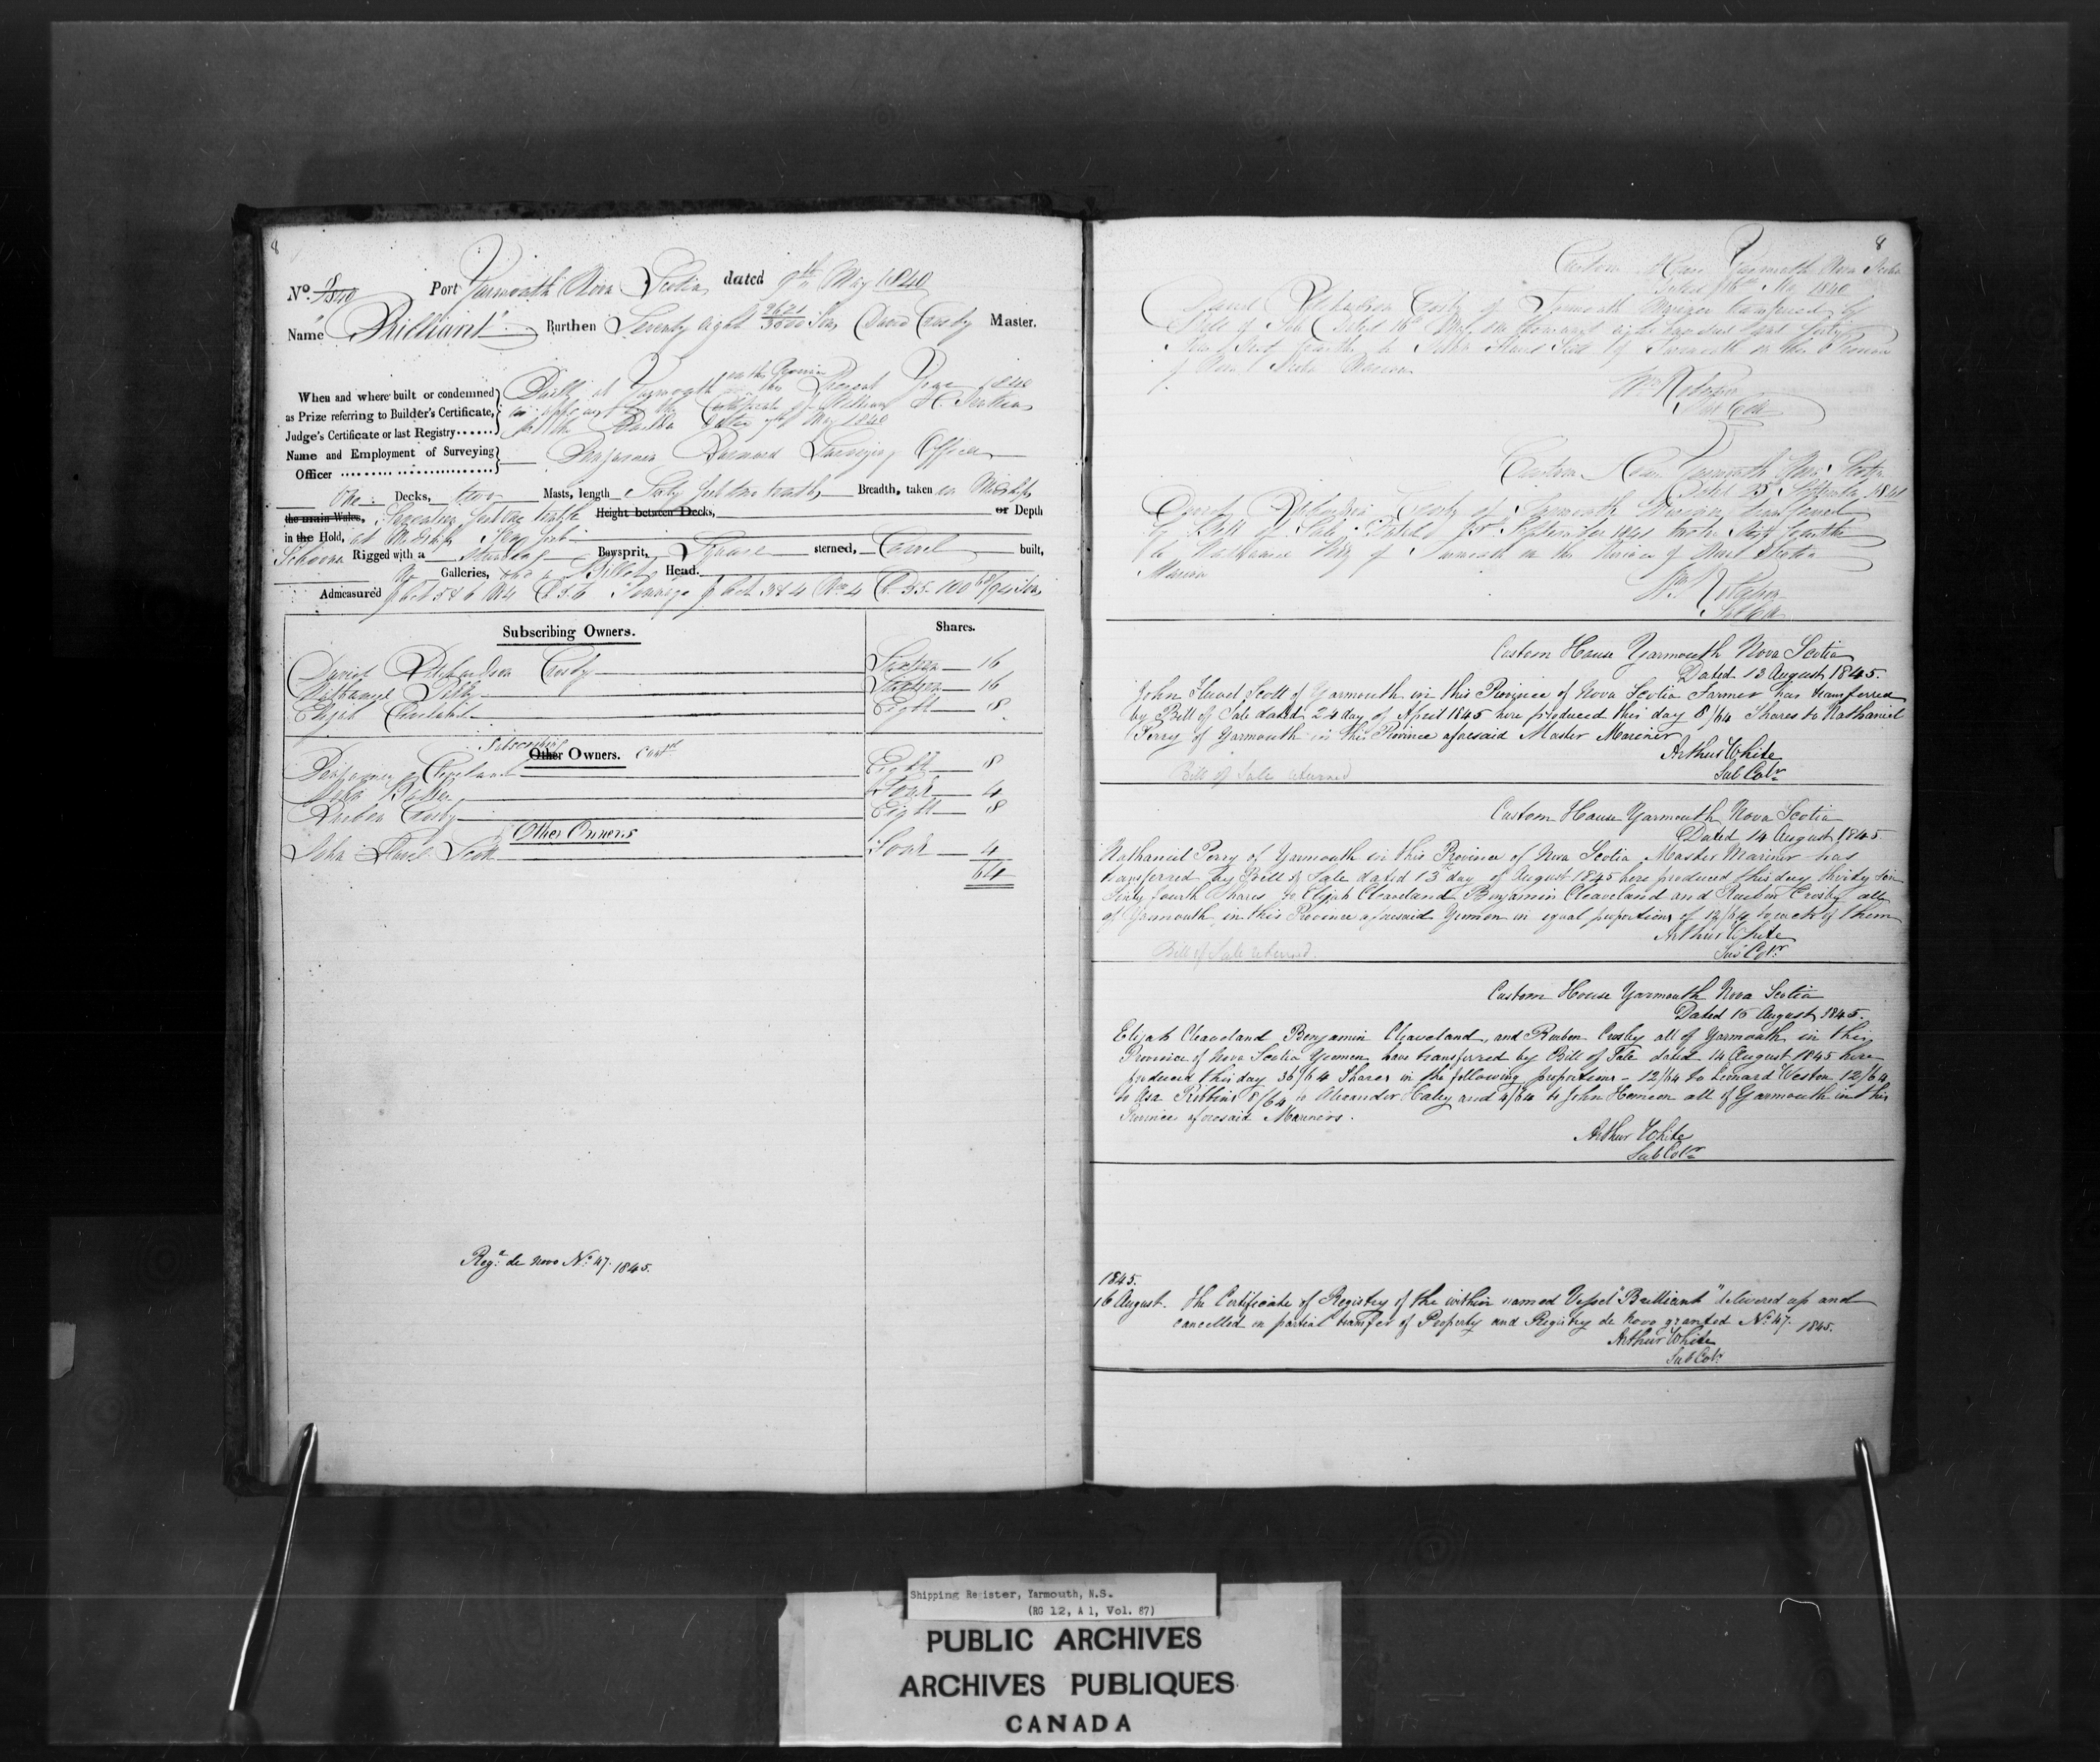 8
No. 8/1840 Port Yarmouth Nova Scotia dated 9th May 1840
Name "Brilliant" Burthen Seventy eight 2621/3500 Tons David Crosby Master.
When and where built or condemned
as Prize referring to Builder's Certificate,
Judge's Certificate or last Registry
Built at Yarmouth in this Province in the Present Year 1840
as appears by the Certificate of William H.
the Builder dated 7th May 1840
Name and Employment of Surveying
Officer
Benjamin Barnard Surveying Officer
One Decks, two Masts, length Sixty feet two tenths Breadth, taken in Midships
the main Wales, Seventeen feet one tenth Height between Decks, or Depth
in the Hold, at Midships feet
Schooner Rigged with a standing Bowsprit, Square sterned, Carvel built,
No Galleries, and a Billet Head.
Admeasured
Subscribing Owners. Shares.
David Richardson Crosby Sixteen 16
Nathaniel Sixteen 16
Elijah Cleveland Eight 8
Subscribing Other Owners. Contd
Benjamin Cleveland Eight 8
Four 4
Reuben Crosby Eight 8
Other Owners
John Scott Four 4
64
Regd. de novo No. 47. 1845.
8
Custom House Yarmouth Nova Scotia
Dated 16th May 1840
David Richardson Crosby of Yarmouth Mariner has transferred by
Bill of Sale Dated 16th May one thousand eight hundred and forty
Four Sixty fourths to John Scott of Yarmouth in the Province
of Nova Scotia
Custom House Yarmouth Nova Scotia
Dated 25 September 1841
David Richardson Crosby of Yarmouth Mariner transferred
by Bill of Sale Dated September 1841 twelve Sixty fourths
to Nathaniel of Yarmouth in the Province of Nova Scotia
Mariner
Custom House Yarmouth Nova Scotia
Dated 13 August 1845.
John Scott of Yarmouth in this Province of Nova Scotia Farmer has transferred
by Bill of Sale dated 24 day of April 1845 here produced this day 8/64 Shares to Nathaniel
Perry of Yarmouth in this Province aforesaid Master Mariner
Arthur White
Sub Colr
Bill of Sale returned
Custom House Yarmouth Nova Scotia
Dated 14 August 1845
Nathaniel Perry of Yarmouth in this Province of Nova Scotia Master Mariner has
transferred by Bill of Sale dated 13th day of August 1845 here produced this day thirty Six
Sixty fourth Shares to Elijah Cleaveland Benjamin Cleaveland and Reuben Crosby all
of Yarmouth in this Province aforesaid Yeomen in equal proportions of 12/64 to each of them
Arthur White
Sub Colr
Bill of Sale returned.
Custom House Yarmouth Nova Scotia
Dated 15 August 1845.
Elijah Cleaveland Benjamin Cleaveland, and Reuben Crosby all of Yarmouth in this
Province of Nova Scotia Yeomen have transferred by Bill of Sale dated 14 August 1845 here
produced this day 36/64 Shares in the following proportions - 12/64 to Leonard Weston 12/64
to Asa Robbins 8/64 to Alexander Haley and 4/64 to John all of Yarmouth in this
Province aforesaid Mariners.
Arthur White
Sub Colr
1845.
16 August. The Certificate of Registry of the within named Vessel "Brilliant" delivered up and
cancelled on partial transfer of Property and Registry de Novo granted No. 47. 1845.
Arthur White
Sub Colr
Shipping Register, Yarmouth, N.S.
(RG 12, A 1, Vol. 87)
PUBLIC ARCHIVES
ARCHIVES PUBLIQUES
CANADA